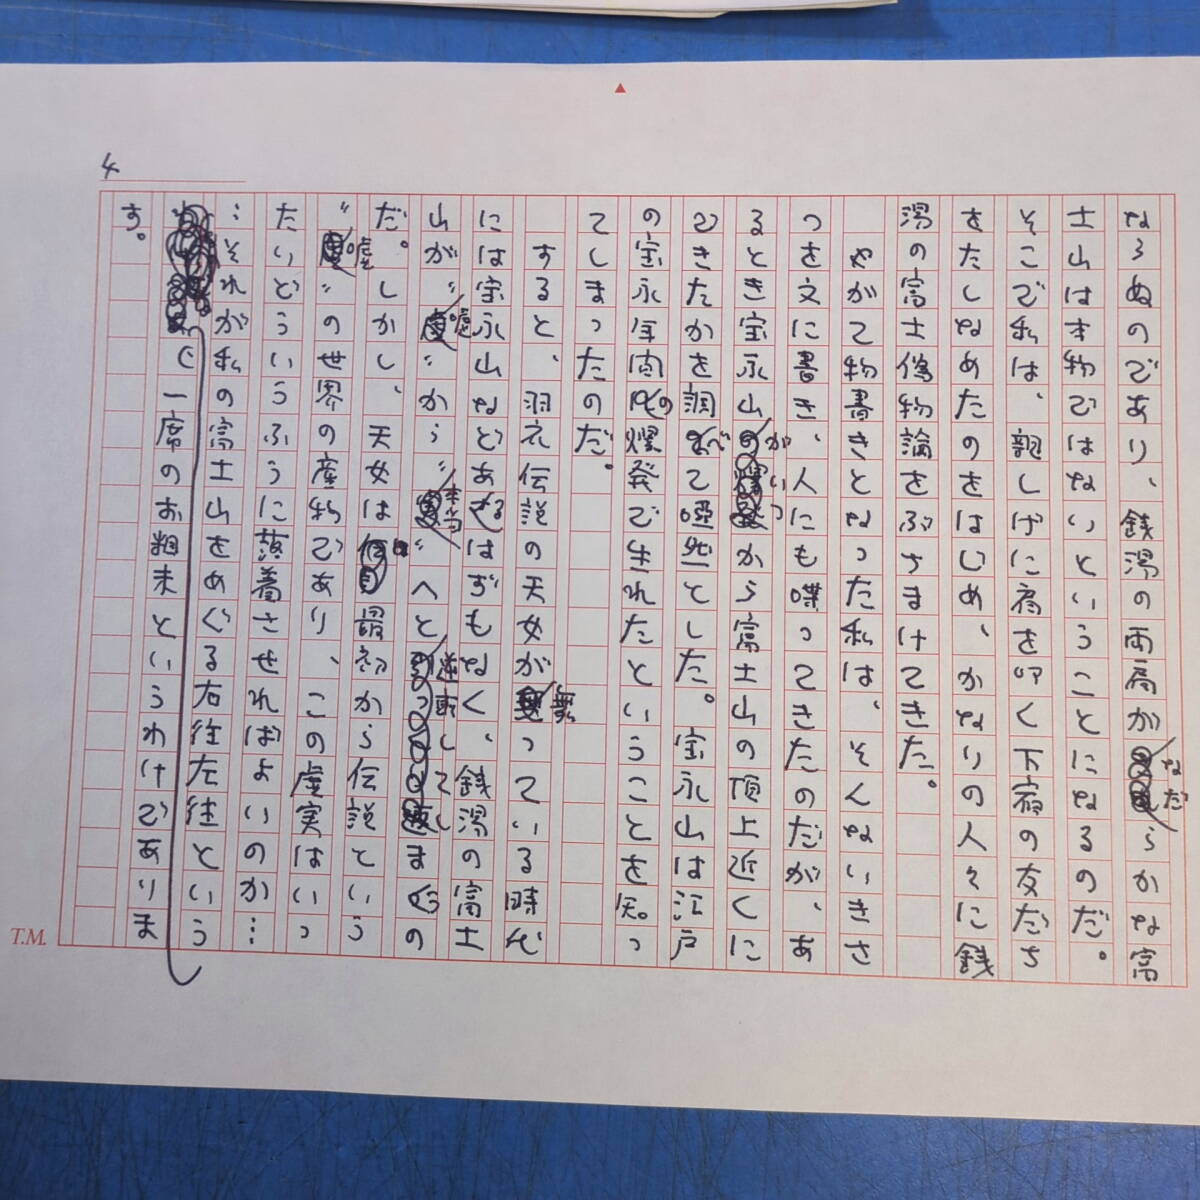 4
ならぬのであり、銭湯の両肩がなだらかな富
士山は本物ではないということになるのだ。
そこで私は、親しげに肩を叩く下宿の友だち
をたしなめたのをはじめ、かなりの人々に銭
湯の富士偽物論をぶちまけてきた。
やがて物書きとなった私は、そんないきさ
つを文に書き、人にも喋ってきたのだが、あ
るとき宝永山がいつから富士山の頂上近くに
できたかを調べて啞然とした。宝永山は江戸
の宝永年間の爆発で生れたということを知っ
てしまったのだ。
すると、羽衣伝説の天女が舞っている時代
には宝永山などあるはずもなく、銭湯の富士
山が〝嘘〟から〝本当〟へと逆転してしまうの
だ。しかし、天女は伝説という
〝嘘〟の世界の産物であり、この虚実はいっ
たいどういうふうに落着させればよいのか…
…それが私の富士山をめぐる右往左往という
一席のお粗末というわけでありま
す。
T.M.